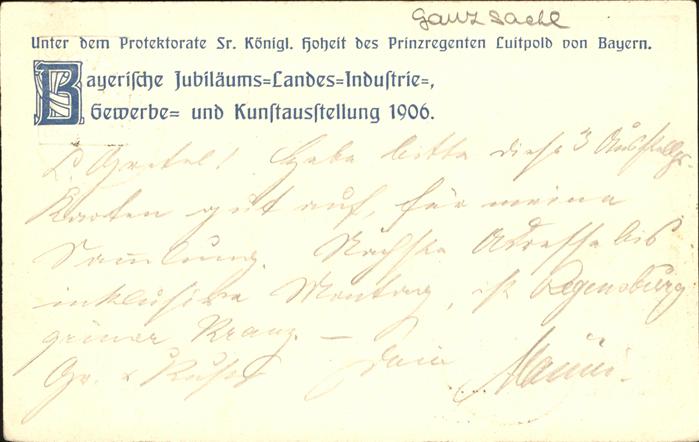 Ganzsache
Unter dem Protektorate Sr. Königl. Hoheit des Prinzregenten Luitpold von Bayern.
Bayerische Jubiläums=Landes=Industrie=,
Gewerbe= und Kunstausstellung 1906.
L. Gretel! Hebe bitte diese 3 Ausstellgs.
Karten gut auf, für meine
Sammlung. Nächste Adresse bis
inklusive Montag, ist Regensburg
grüner Kranz. —
Gr. u Kuss Dein